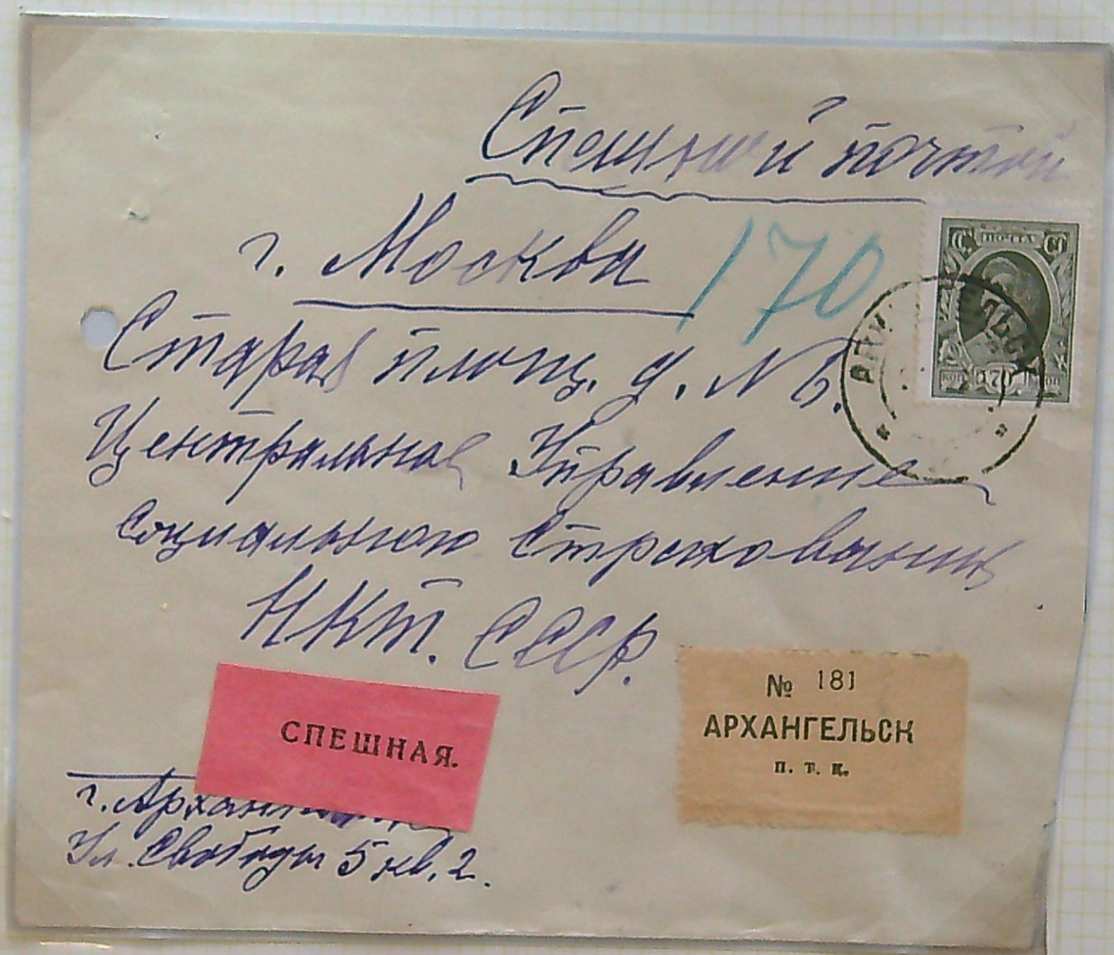 Спешной почтой
г. Москва 170
ПОЧТА
70
Старая площ. д. № 6.
Центральное Управление
социального страхования
НКТ. СССР.
СПЕШНАЯ.
№ 181
АРХАНГЕЛЬСК
П. Т. К.
г. Архангельск
Ул. Свободы 5 кв. 2.